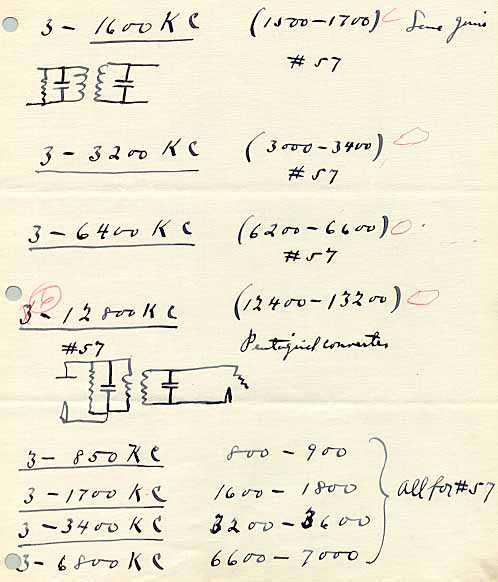 3 - 1600 KC (1500-1700) Same gain
#57
3 - 3200 KC (3000-3400)
#57
3 - 6400 KC (6200-6600)
#57
3 - 12800 KC (12400-13200)
#57 Pentagrid converter
3 - 850 KC 800 - 900
3 - 1700 KC 1600 - 1800
3 - 3400 KC 3200 - 3600
3 - 6800 KC 6600 - 7000
all for #57